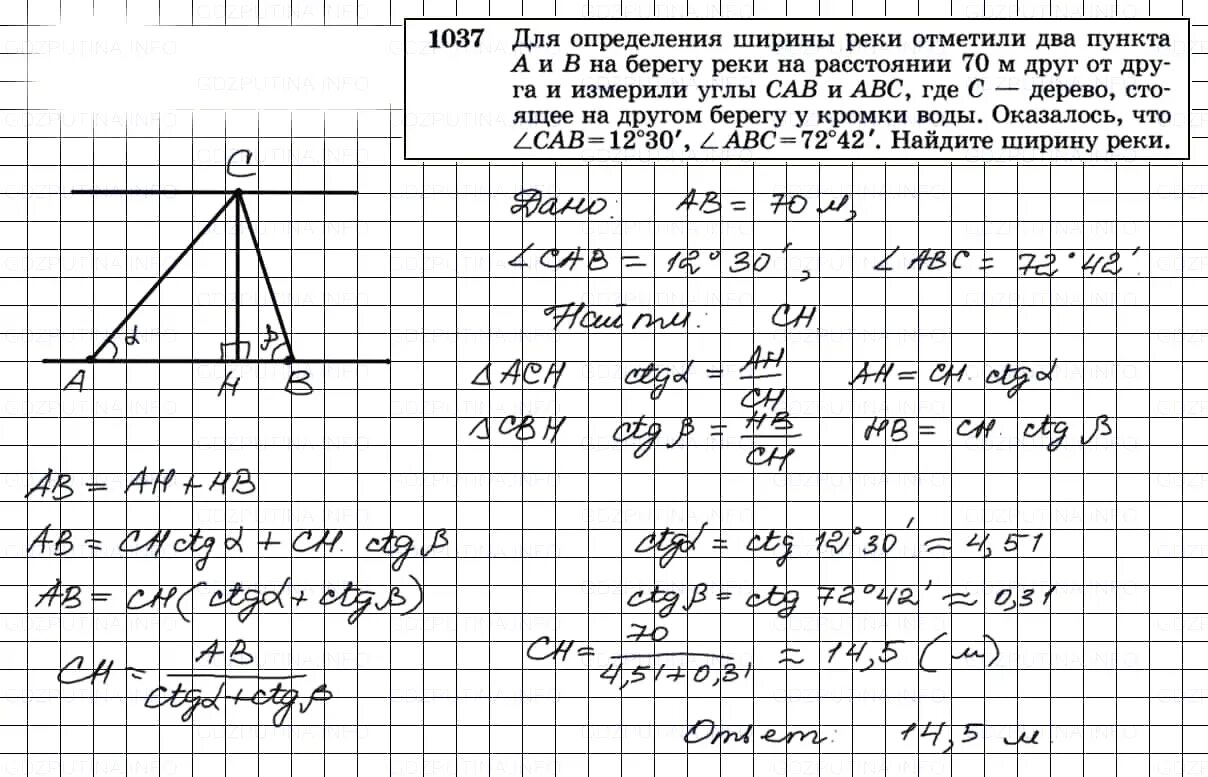 1037 Для определения ширины реки отметили два пункта
A и B на берегу реки на расстоянии 70 м друг от дру-
га и измерили углы CAB и ABC, где C — дерево, сто-
ящее на другом берегу у кромки воды. Оказалось, что
∠CAB=12°30′, ∠ABC=72°42′. Найдите ширину реки.
C
Дано: AB = 70 м,
∠CAB = 12°30′, ∠ABC = 72°42′.
Найти: CH
α β
A H B
△ACH ctgα = AH/CH AH = CH · ctgα
△CBH ctgβ = HB/CH HB = CH · ctgβ
AB = AH + HB
AB = CH ctgα + CH · ctgβ ctgα = ctg 12°30′ ≈ 4,51
AB = CH(ctgα + ctgβ) ctgβ = ctg 72°42′ ≈ 0,31
CH = AB/(ctgα + ctgβ) CH = 70/(4,51+0,31) ≈ 14,5 (м)
Ответ: 14,5 м.
GDZPUTINA.INFO